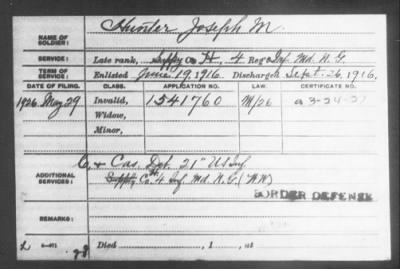 NAME OF SOLDIER: Hunter Joseph M.
SERVICE: Late rank, Co H, 4 Reg't Inf. Md. N. G.
TERM OF SERVICE: Enlisted June 19, 1916. Discharged Sept. 26, 1916.
DATE OF FILING. CLASS. APPLICATION NO. LAW. CERTIFICATE NO.
1926 May 29 Invalid, 1541760 M/26 a 3-24-27
Widow,
Minor,
C. & Cas. Det. 21" US Inf
ADDITIONAL SERVICES: Co. 4 Inf. Md. N. G. (WW)
BORDER DEFENSE
REMARKS:
Died , 1 ,